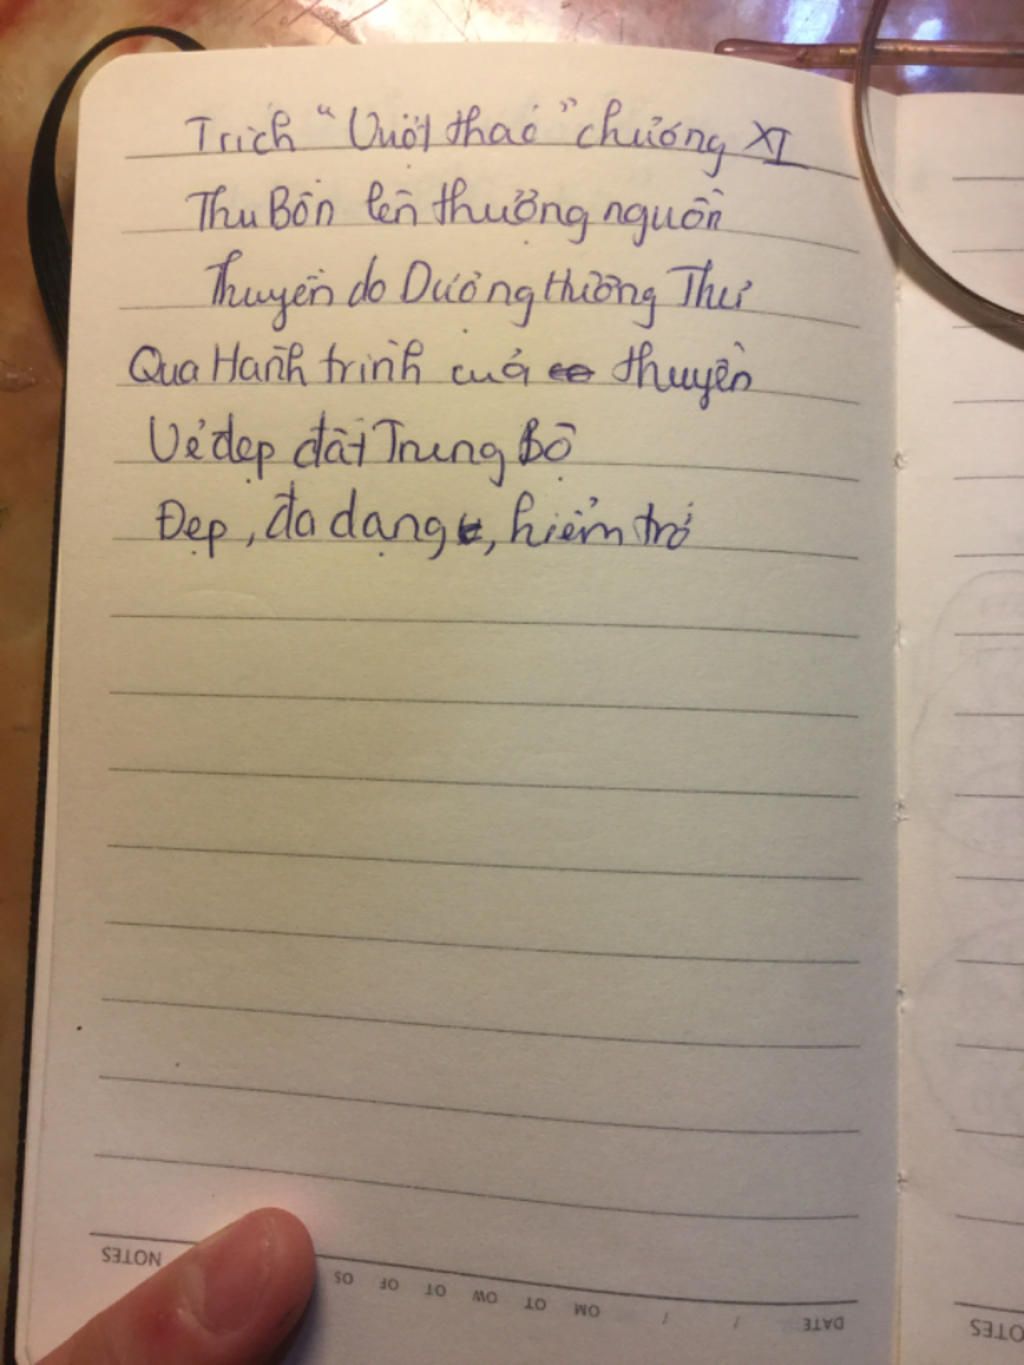 Trích "Vượt thác" chương XI
Thu Bồn lên thượng nguồn
Thuyền do Dượng Hương Thư
Qua Hành trình của thuyền
Vẻ đẹp đất Trung Bộ
Đẹp, đa dạng, hiểm trở
NOTES
SO
OF
OT
OW
OT
OM
/ /
DATE